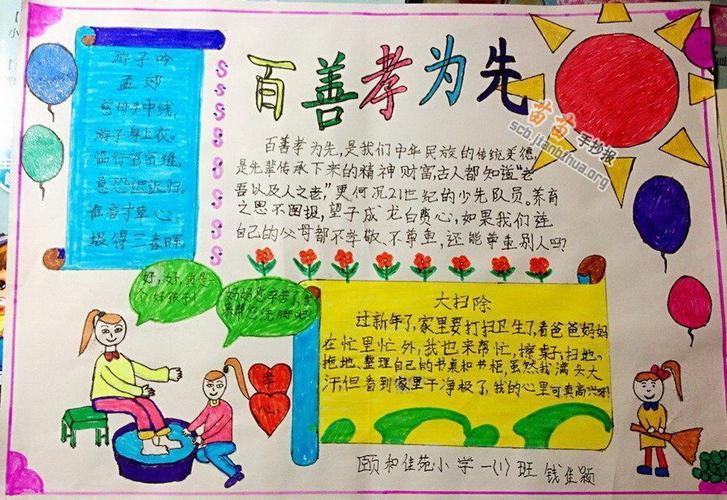 百善孝为先
游子吟
孟郊
慈母手中线,
游子身上衣。
临行密密缝,
意恐迟迟归。
谁言寸草心,
报得三春晖。
百善孝为先,是我们中华民族的传统美德,
是先辈传承下来的精神财富古人都知道“老
吾以及人之老,”更何况21世纪的少先队员。养育
之恩不图报,望子成龙白费心,如果我们连
自己的父母都不孝敬、不尊重,还能尊重别人吗?
苗苗手抄报
scb.jianbihua.org
好,好,真是一
个好孩子!
妈妈您辛苦了,我
来帮您洗脚吧!
孝
心
大扫除
过新年了,家里要打扫卫生了,看爸爸妈妈
在忙里忙外,我也来帮忙,擦桌子,扫地。
拖地、整理自己的书桌和书柜,虽然我满头大
汗,但看到家里干净极了,我的心里可真高兴呀!
颐和佳苑小学一(1)班 钱佳颖